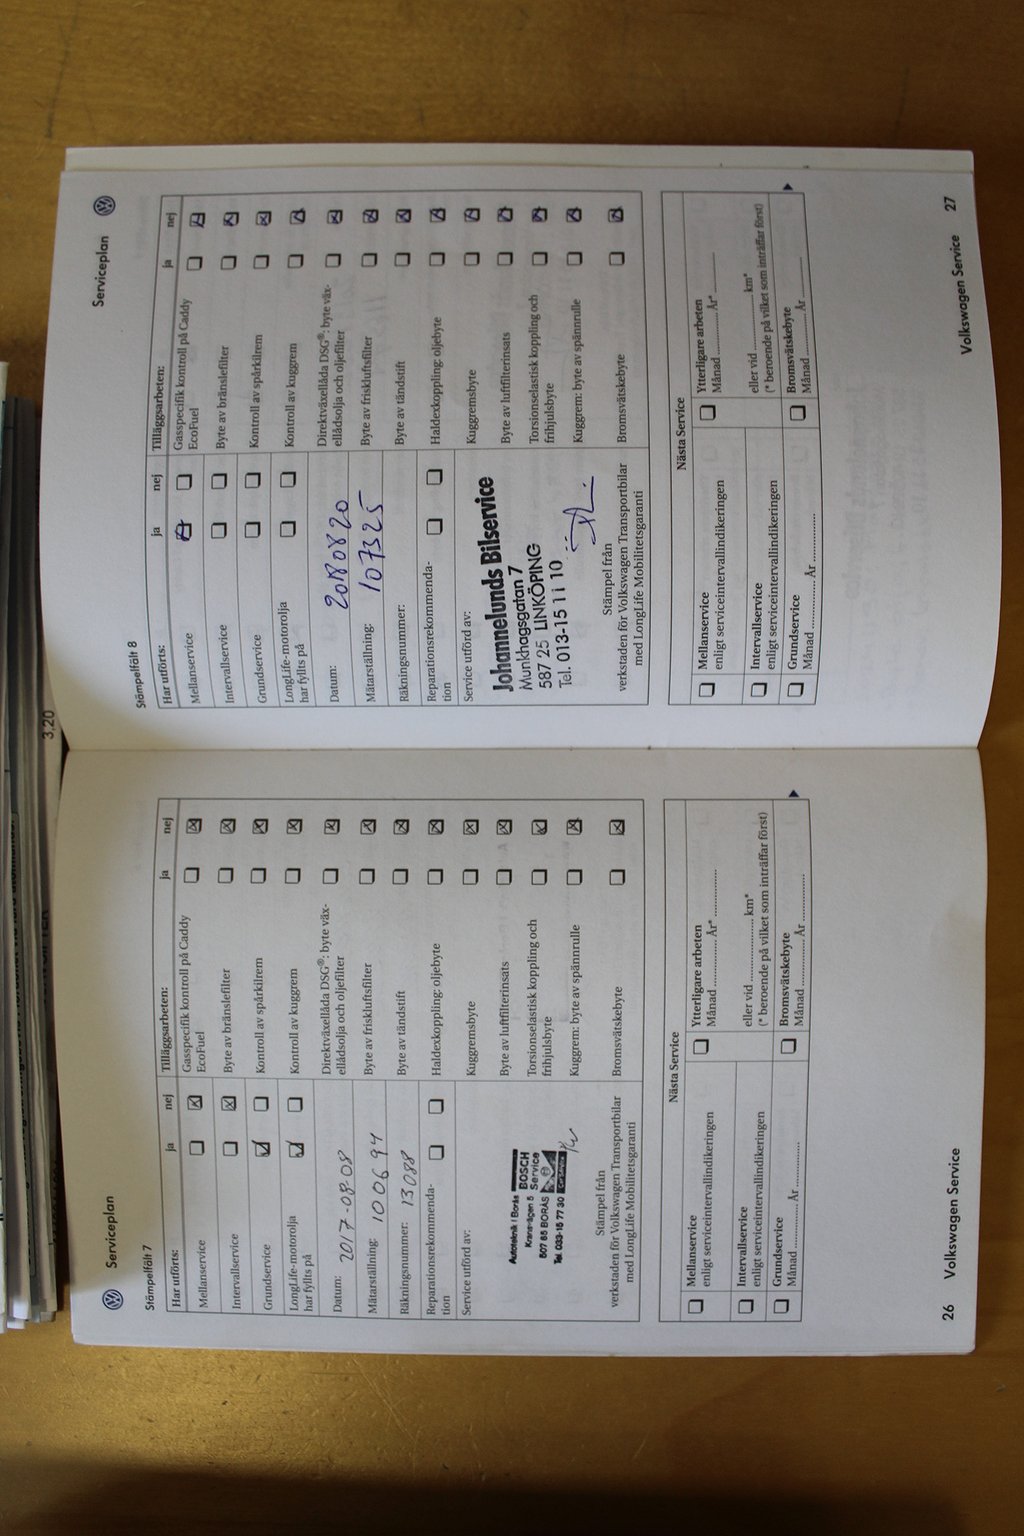 Serviceplan
Stämpelfält 7
Har utförts:
ja
nej
Mellanservice
Intervallservice
Grundservice
LongLife-motorolja
har fyllts på
Datum: 2017-08-08
Mätarställning: 100694
Räkningsnummer: 13088
Reparationsrekommenda-
tion
Service utförd av:
Autoteknik i Borås
BOSCH
Kranvägen 5
Service
507 65 BORÅS
Tel. 033-15 77 30
Car Service
Stämpel från
verkstaden för Volkswagen Transportbilar
med LongLife Mobilitetsgaranti
Tilläggsarbeten:
ja
nej
Gasspecifik kontroll på Caddy
EcoFuel
Byte av bränslefilter
Kontroll av spårkilrem
Kontroll av kuggrem
Direktväxellåda DSG®: byte väx-
ellådsolja och oljefilter
Byte av friskluftsfilter
Byte av tändstift
Haldexkoppling: oljebyte
Kuggremsbyte
Byte av luftfilterinsats
Torsionselastisk koppling och
frihjulsbyte
Kuggrem: byte av spännrulle
Bromsvätskebyte
Nästa Service
Mellanservice
enligt serviceintervallindikeringen
Intervallservice
enligt serviceintervallindikeringen
Grundservice
Månad ............... År ...............
Ytterligare arbeten
Månad ............... År* ...............
eller vid ............... km*
(* beroende på vilket som inträffar först)
Bromsvätskebyte
Månad ............... År ...............
26 Volkswagen Service
Serviceplan
Stämpelfält 8
Har utförts:
ja
nej
Mellanservice
Intervallservice
Grundservice
LongLife-motorolja
har fyllts på
Datum: 20180820
Mätarställning: 107325
Räkningsnummer:
Reparationsrekommenda-
tion
Service utförd av:
Johannelunds Bilservice
Munkhagsgatan 7
587 25 LINKÖPING
Tel. 013-15 11 10
Stämpel från
verkstaden för Volkswagen Transportbilar
med LongLife Mobilitetsgaranti
Tilläggsarbeten:
ja
nej
Gasspecifik kontroll på Caddy
EcoFuel
Byte av bränslefilter
Kontroll av spårkilrem
Kontroll av kuggrem
Direktväxellåda DSG®: byte väx-
ellådsolja och oljefilter
Byte av friskluftsfilter
Byte av tändstift
Haldexkoppling: oljebyte
Kuggremsbyte
Byte av luftfilterinsats
Torsionselastisk koppling och
frihjulsbyte
Kuggrem: byte av spännrulle
Bromsvätskebyte
Nästa Service
Mellanservice
enligt serviceintervallindikeringen
Intervallservice
enligt serviceintervallindikeringen
Grundservice
Månad ............... År ...............
Ytterligare arbeten
Månad ............... År* ...............
eller vid ............... km*
(* beroende på vilket som inträffar först)
Bromsvätskebyte
Månad ............... År ...............
Volkswagen Service 27
3.20